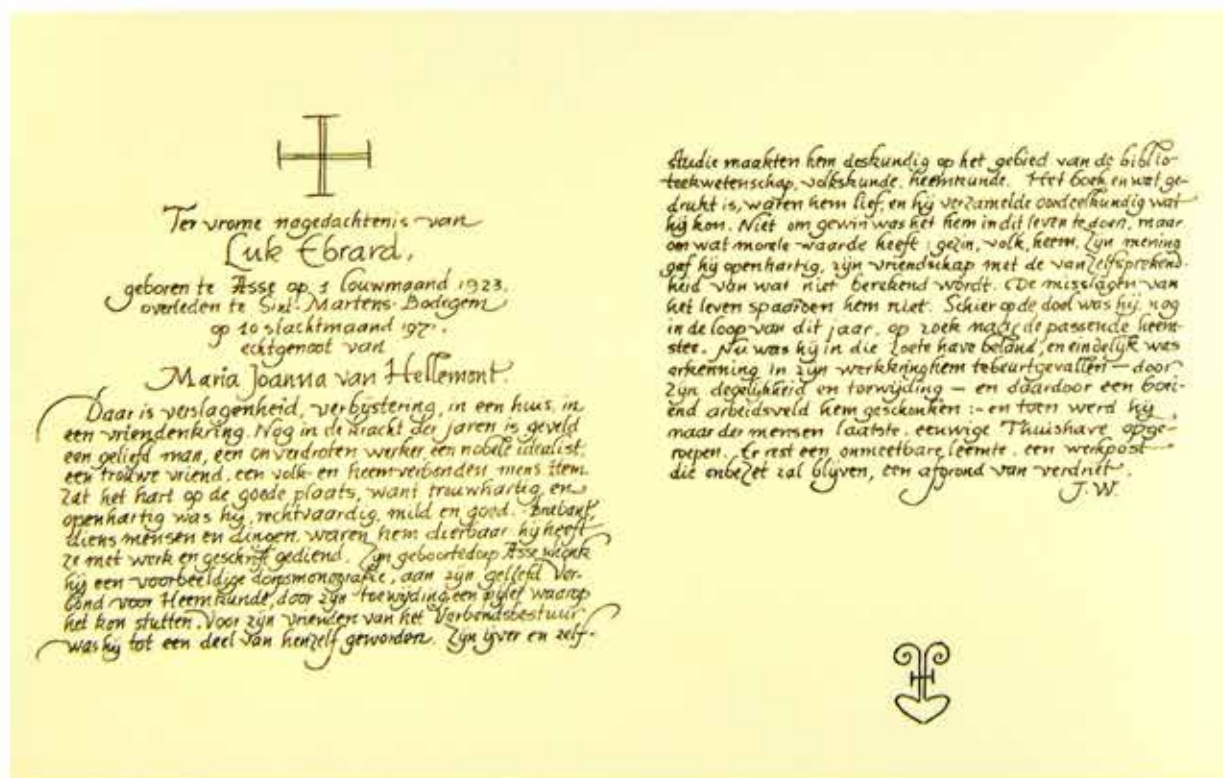 Ter vrome nagedachtenis van
Luk Ebrard,
geboren te Asse op 1 louwmaand 1923.
overleden te Sint-Martens-Bodegem
op 10 slachtmaand
echtgenoot van
Maria Joanna van Hellemont.
Daar is verslagenheid, verbijstering, in een huis, in
een vriendenkring. Nog in de kracht der jaren is geveld
een geliefd man, een onverdroten werker een nobele idealist,
een trouwe vriend, een volk- en heemverbonden mens. Hem
zat het hart op de goede plaats, want trouwhartig en
openhartig was hij, rechtvaardig, mild en goed. Brabant,
diens mensen en dingen, waren hem dierbaar: hij heeft
ze met werk en geschrift gediend. Zijn geboortedorp Asse schonk
hij een voorbeeldige dorpsmonografie, aan zijn geliefd Ver-
bond voor Heemkunde, door zijn toewijding een pijler waarop
het kon stutten. Voor zijn vrienden van het Verbondsbestuur
was hij tot een deel van henzelf geworden. Zijn ijver en zelf-
studie maakten hem deskundig op het gebied van de biblio-
teekwetenschap, volkskunde, heemkunde. Het boek en wat ge-
drukt is, waren hem lief, en hij verzamelde oordeelkundig wat
hij kon. Niet om gewin was het hem in dit leven te doen, maar
om wat morele waarde heeft: gezin, volk, heem. Zijn mening
gaf hij openhartig, zijn vriendschap met de vanzelfsprekend-
heid van wat niet berekend wordt. De misslagen van
het leven spaarden hem niet. Schier op de dool was hij, nog
in de loop van dit jaar, op zoek naar de passende heem-
stee. Nu was hij in die zoete have beland, en eindelijk was
erkenning in zijn werkkring hem tebeurtgevallen — door
zijn degelijkheid en toewijding — en daardoor een boei-
end arbeidsveld hem geschonken :- en toen werd hij
naar der mensen laatste, eeuwige Thuishave opge-
roepen. Er rest een onmeetbare leemte, een werkpost
die onbezet zal blijven, een afgrond van verdriet.
J.W.